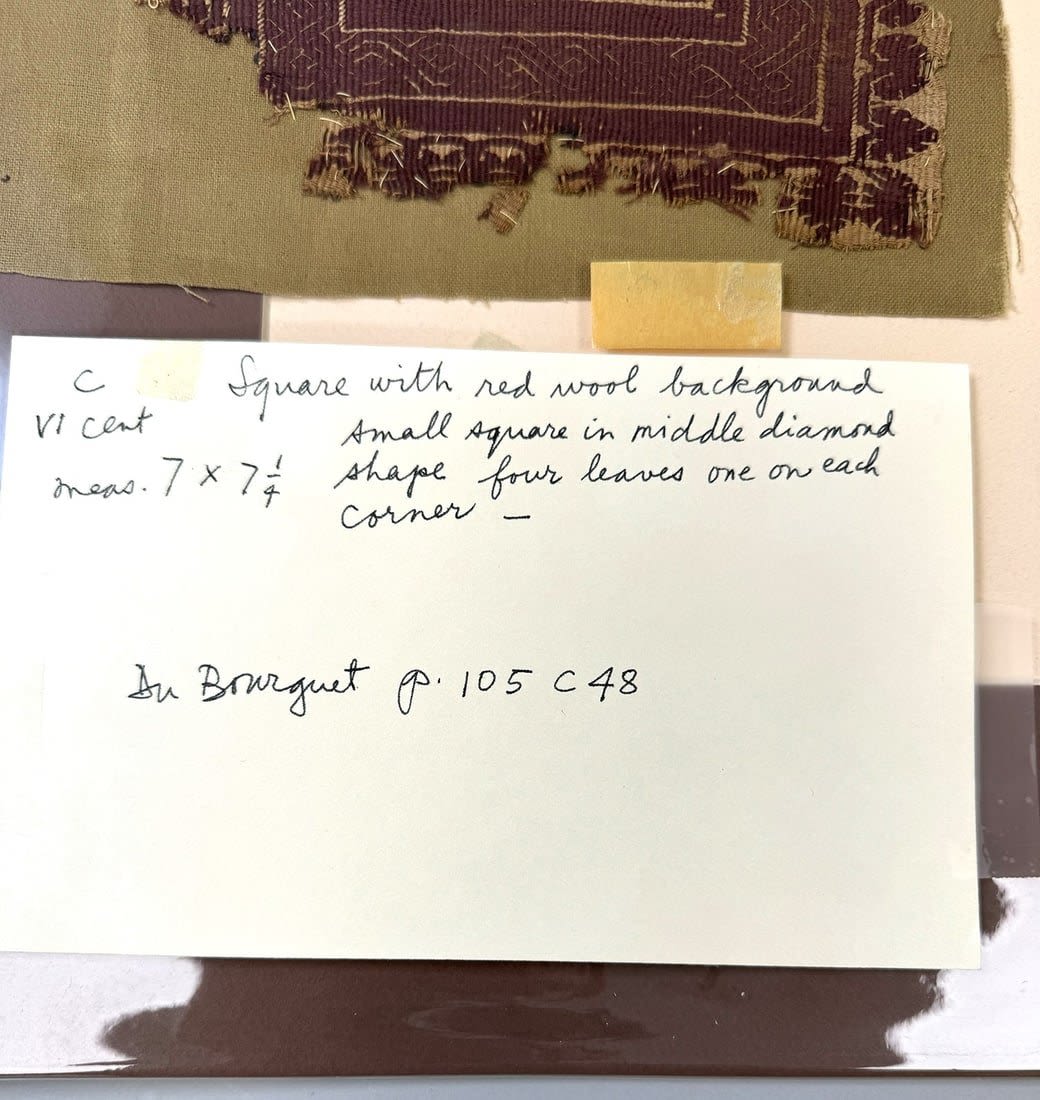 C Square with red wool background
VI cent small square in middle diamond
meas. 7 x 7 1/4 shape four leaves one on each
corner –
Du Bourguet p. 105 C 48